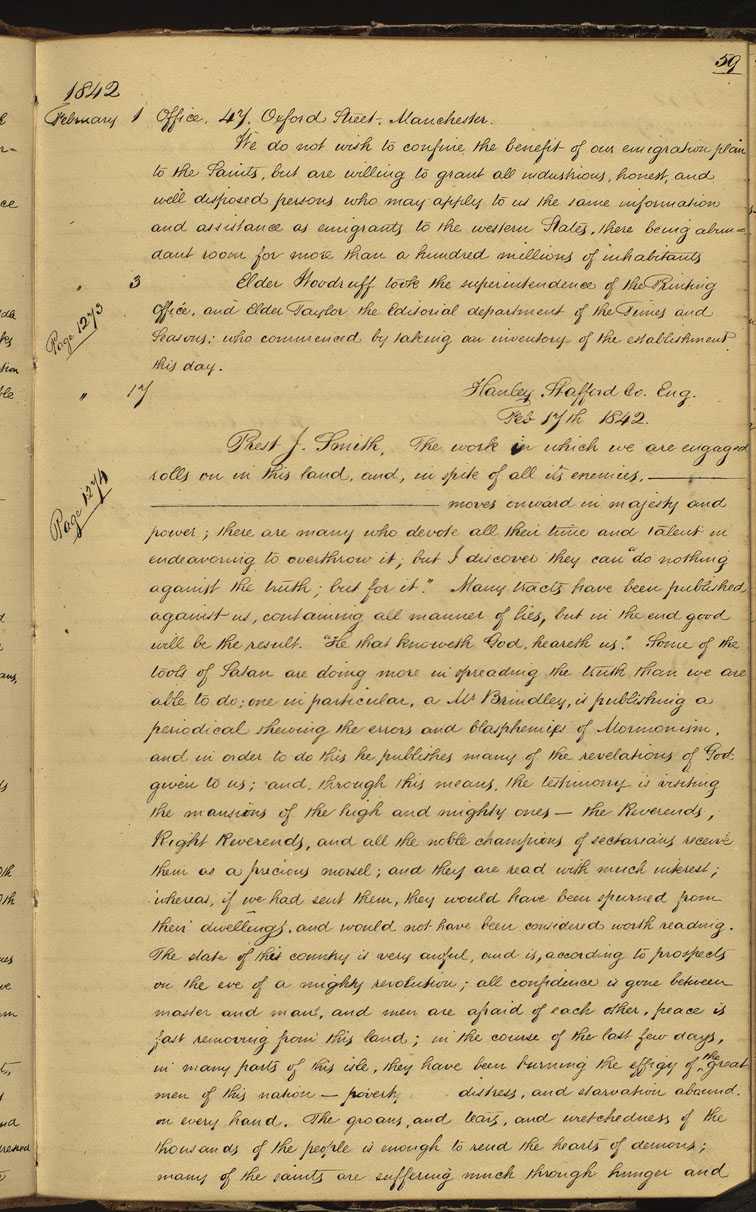 59
1842
February 1 Office, 47, Oxford Street, Manchester.
We do not wish to confine the benefit of our emigration plan
to the Saints, but are willing to grant all industrious, honest, and
well disposed persons who may apply to us the same information
and assistance as emigrants to the western States, there being abun=
dant room for more than a hundred millions of inhabitants
" 3 Elder Woodruff took the superintendence of the Printing
Page 1273
Office, and Elder Taylor the Editorial department of the Times and
Seasons; who commenced by taking an inventory of the establishment
this day.
" 17 Hanley, Stafford Co. Eng.
Feb 17th 1842.
Prest J. Smith, The work in which we are engaged
rolls on in this land, and, in spite of all its enemies,
Page 1274
moves onward in majesty and
power; there are many who devote all their time and talent in
endeavoring to overthrow it; but I discover they can "do nothing
against the truth; but for it." Many tracts have been published
against us, containing all manner of lies, but in the end good
will be the result. "He that knoweth God, heareth us." Some of the
tools of Satan are doing more in spreading the truth than we are
able to do; one in particular, a Mr Brindley, is publishing a
periodical shewing the errors and blasphemies of Mormonism,
and in order to do this he publishes many of the revelations of God
given to us; and, through this means, the testimony is visiting
the mansions of the high and mighty ones — the Reverends,
Right Reverends, and all the noble champions of sectarians receive
them as a precious morsel; and they are read with much interest;
whereas, if we had sent them, they would have been spurned from
their dwellings, and would not have been considered worth reading.
The state of this country is very awful, and is, according to prospects
on the eve of a mighty revolution; all confidence is gone between
master and man, and men are afraid of each other, peace is
fast removing from this land; in the course of the last few days,
in many parts of this isle, they have been burning the effigy of the great
men of this nation — poverty distress, and starvation abound
on every hand. The groans, and tears, and wretchedness of the
thousands of the people is enough to rend the hearts of demons;
many of the saints are suffering much through hunger and